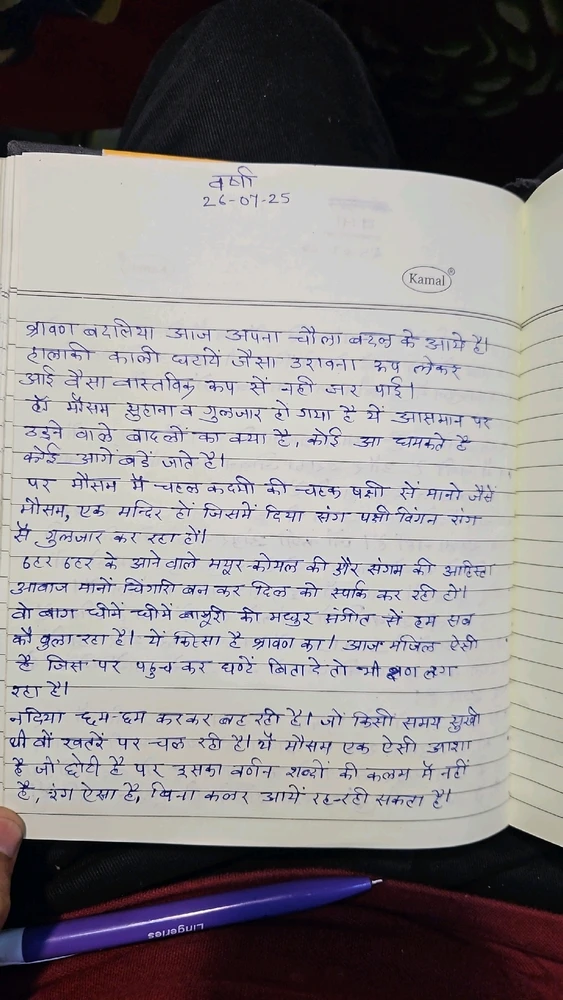 वर्षा
26-07-25
Kamal®
श्रावण बदलिया आज अपना चौला बदल के आये है।
हालाकी काली घटायें जैसा डरावना रूप लेकर
आई वैसा वास्तविक रूप से नही जर पाई।
हाँ मौसम सुहाना व गुलजार हो गया है यें आसमान पर
उड़ने वाले बादलों का क्या है, कोई आ धमकते है
कोई आगें बडें जाते है।
पर मौसम मैं चहल कदमी की चहक पक्षी सें मानो जैसें
मौसम, एक मन्दिर हों जिसमें दिया संग पक्षी विंगन रंग
सें गुलजार कर रहा हों।
ठहर ठहर के आने वाले मयूर-कोयल की और संगम की आहिस्ता
आवाज मानों चिंगारी बन कर दिल को स्पर्क कर रही हो।
वो बाग धीमें धीमें बासुरी की मधुर संगीत सें हम सब
कों बुला रहा है। यें किस्सा है श्रावण का। आज मंजिल ऐसी
हैं जिस पर पहुच कर घण्टें बिता दे तो भी क्षण लग
रहा है।
नदिया छम-छम करकर बह रही है। जों किसी समय सुखी
थी वों खतरें पर चल रही है। यें मौसम एक ऐसी आशा
है जों छोटी है पर इसका वर्णन शब्दों की कलम में नहीं
है, रंग ऐसा है, बिना कलर आयें रह-रही सकता है।
Lingeries